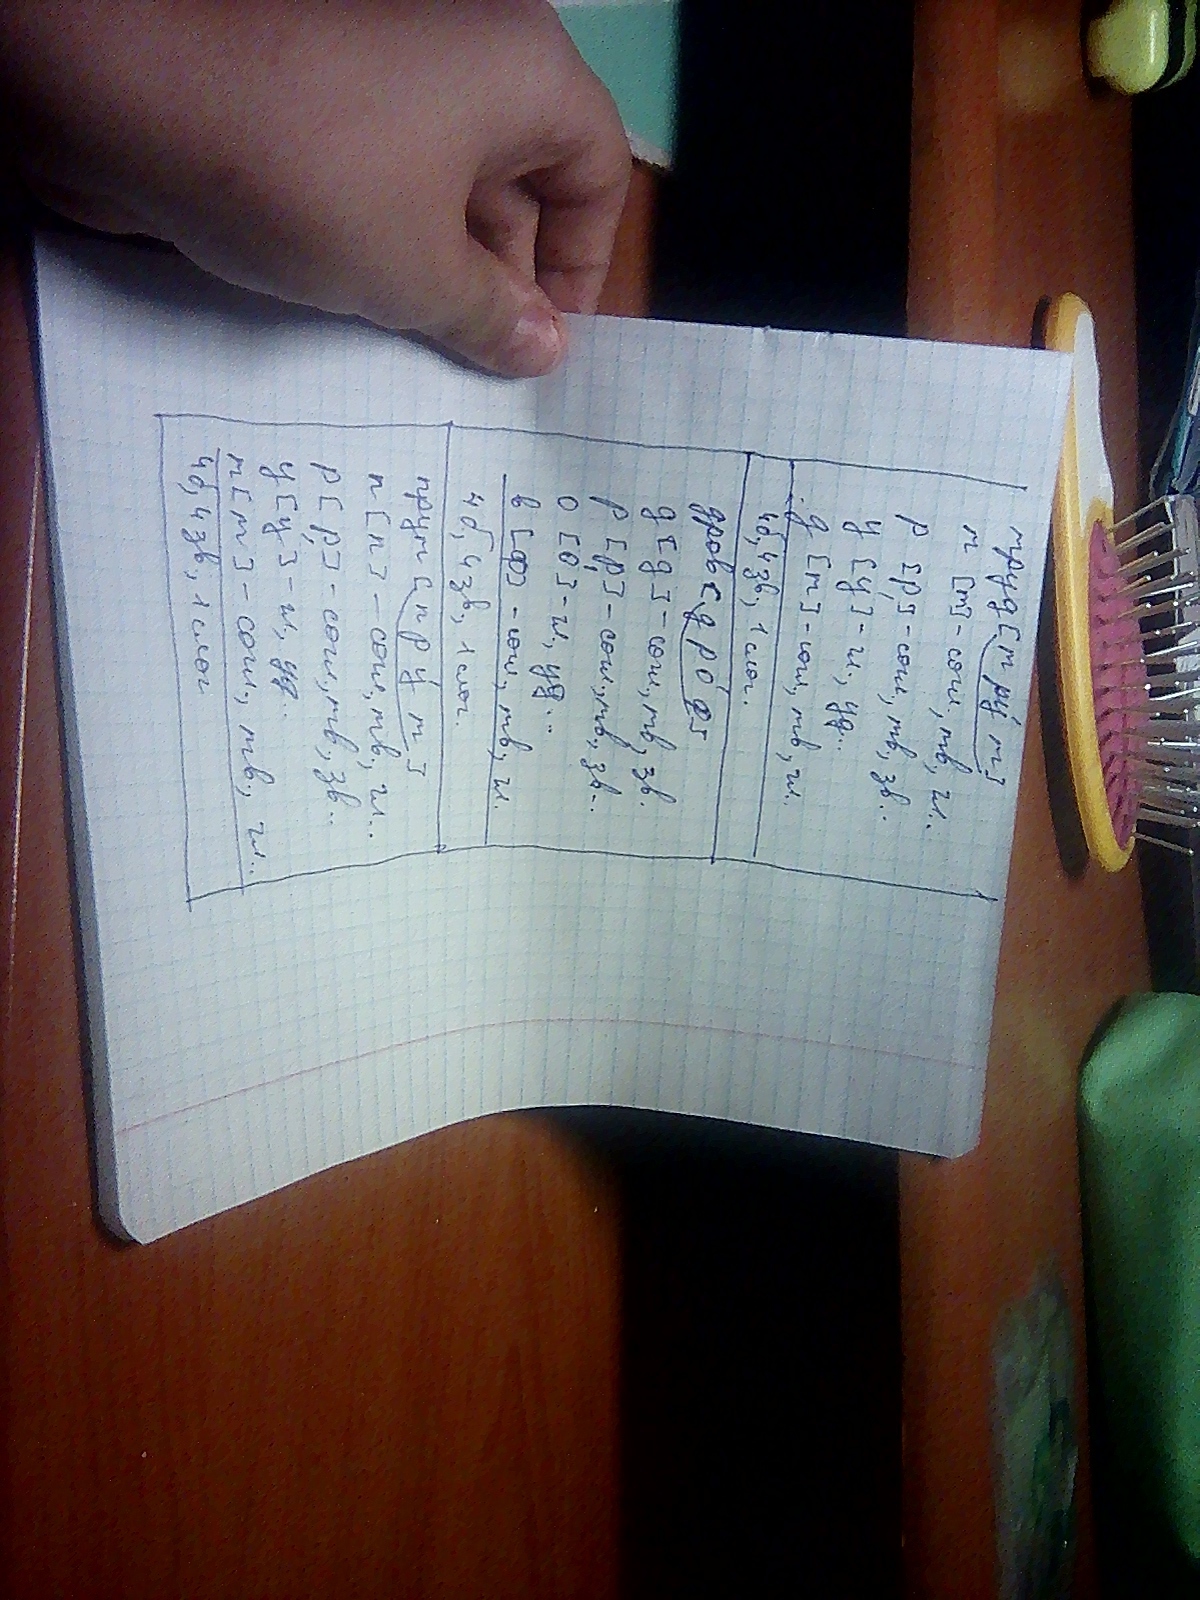 труд [т ру́ т]
т [т] - сог, тв, гл..
р [р] - сог, тв, зв..
у [у] - гл, уд..
д [т] - сог, тв, гл..
4б, 4 зв, 1 слог.
дров [д р о́ ф]
д [д] - сог, тв, зв.
р [р] - сог, тв, зв..
о [о] - гл, уд..
в [ф] - сог, тв, гл.
4б, 4 зв, 1 слог.
прут [п р у́ т]
п [п] - сог, тв, гл..
р [р] - сог, тв, зв..
у [у] - гл, уд..
т [т] - сог, тв, гл..
4б, 4 зв, 1 слог